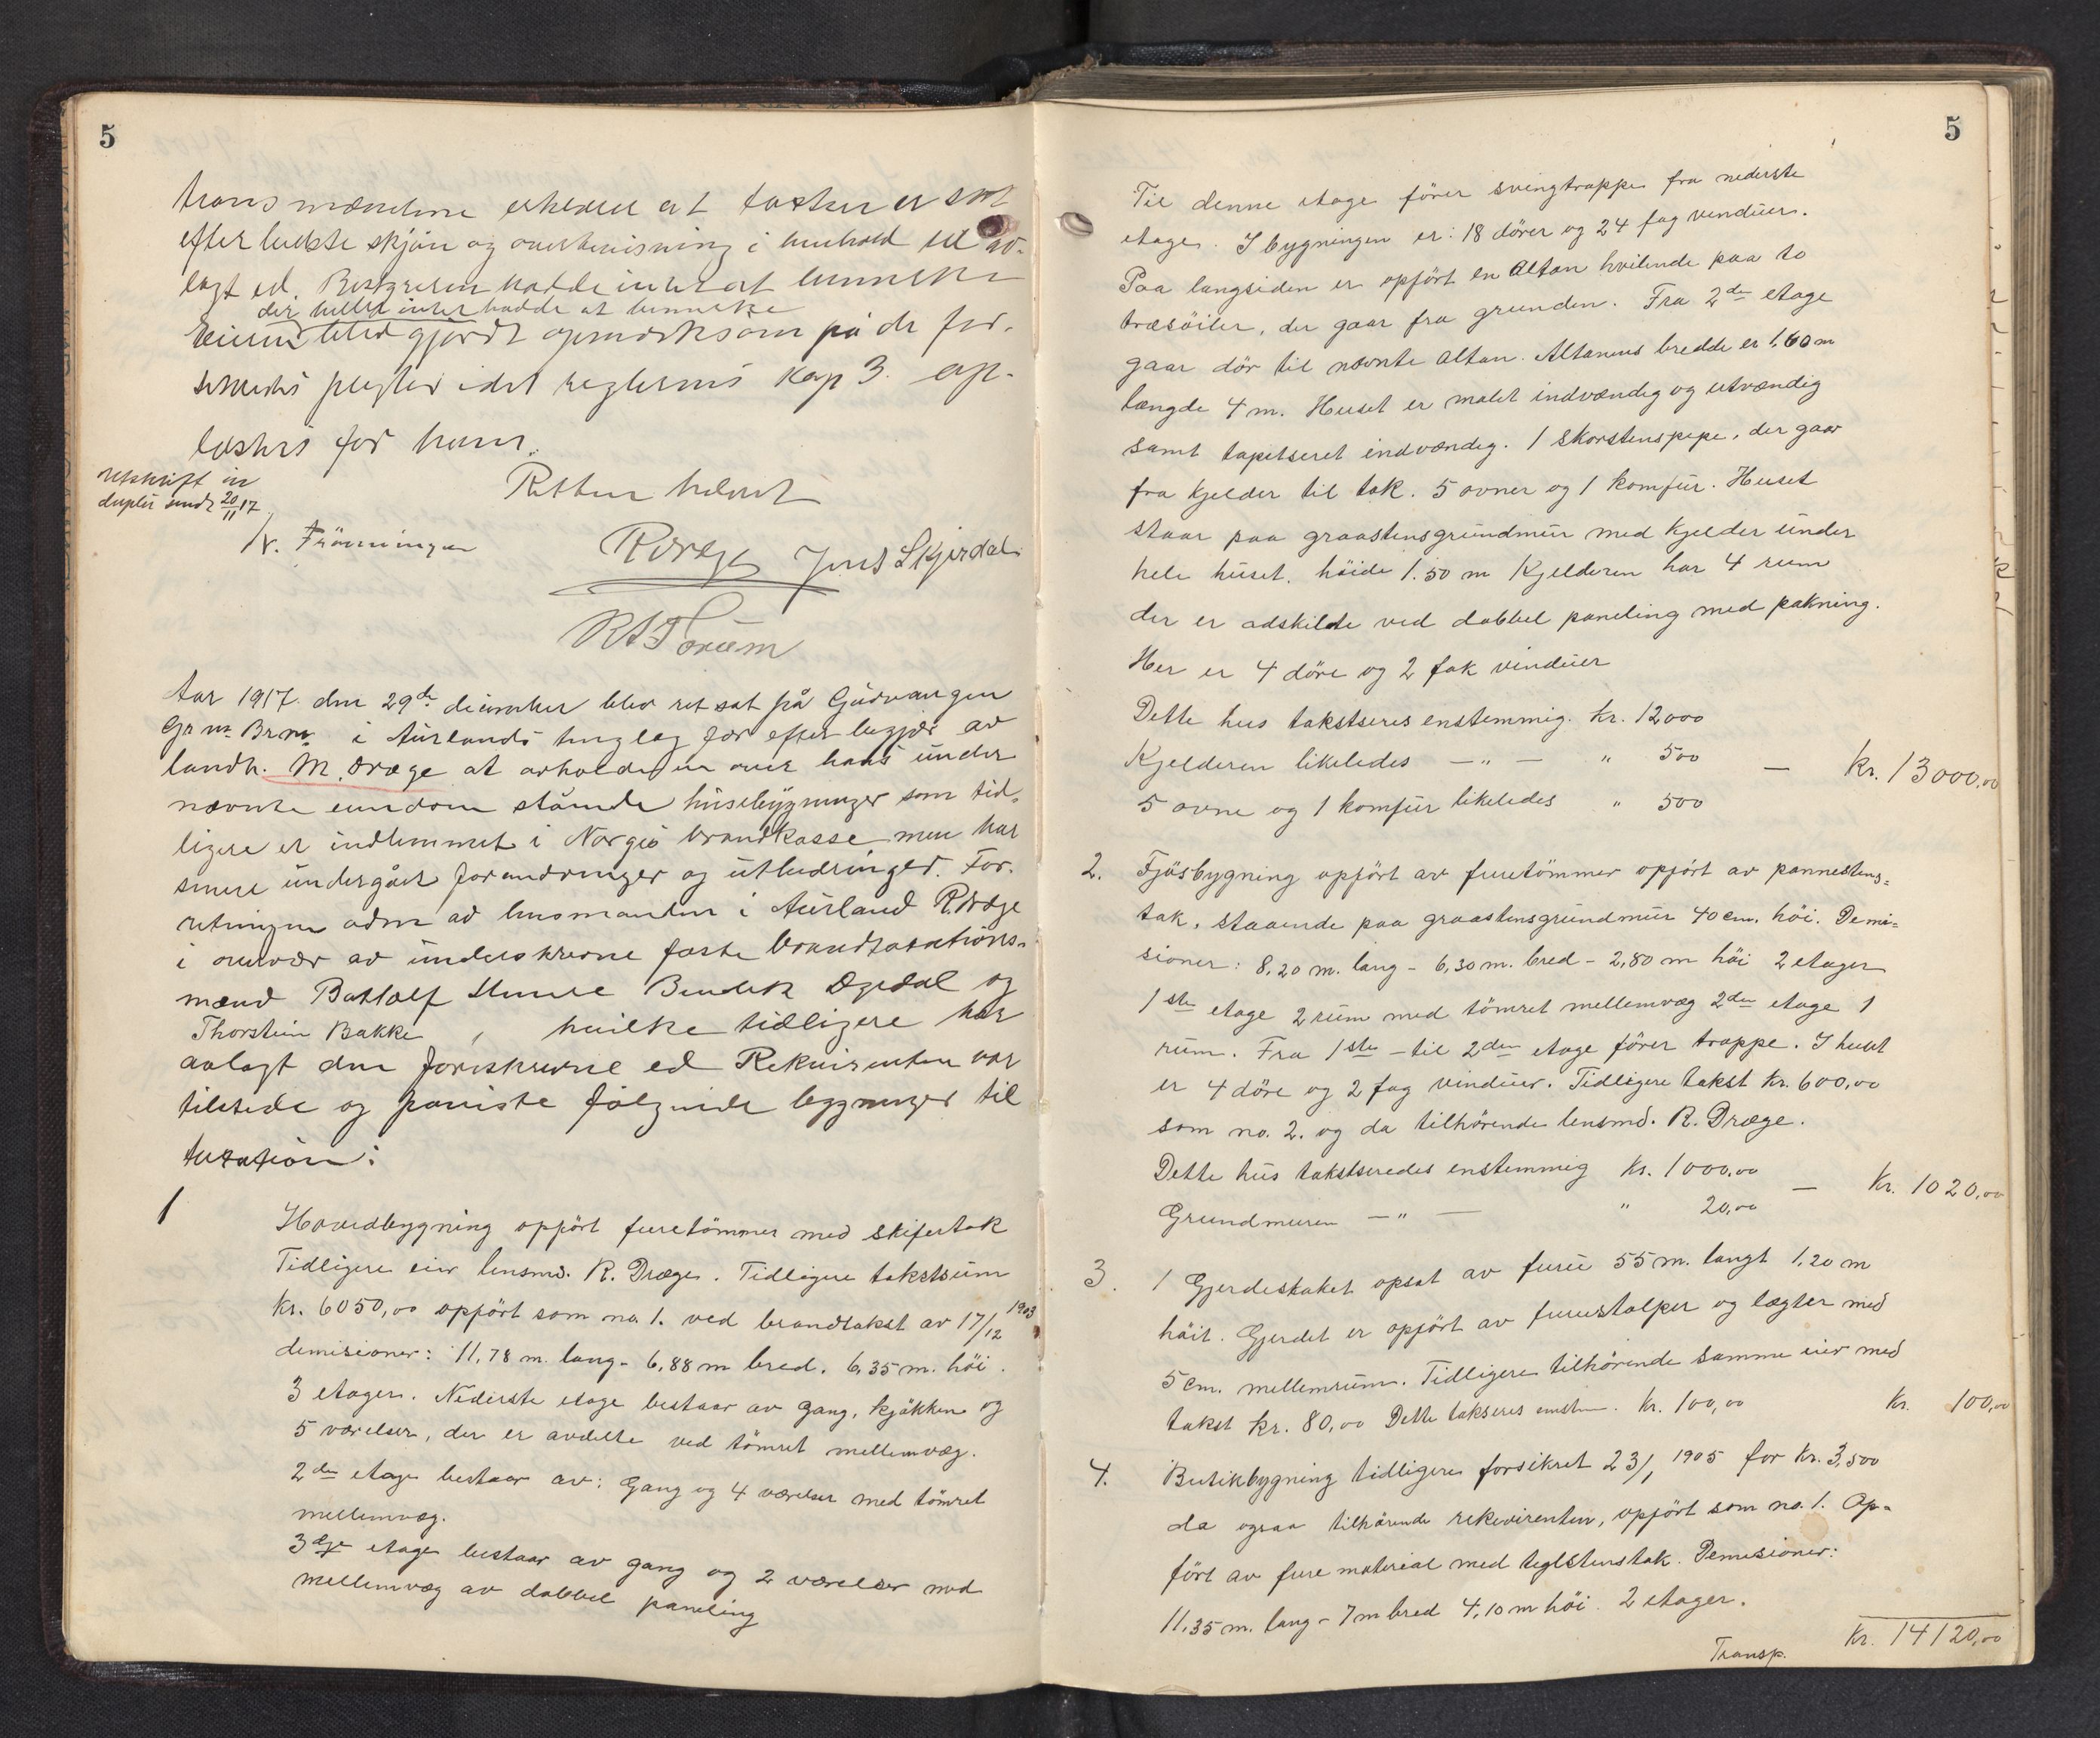 5
transmændene erklærer at taksten er sat
efter bedste skjön og overbevisning i henhold til av-
lagt ed. Bestyreren hadde intet at bemerke
der heller intet hadde at bemerke
Eieren blev gjordt opmerksom på de for-
sikredes pligter idet reglernes Kap 3. op-
læstes for ham.
Utskrift in
duplo sendt 20/11 17
Retten hævet
RDræge Jens Skjerdal
Aar 1917 den 29de december blev ret sat på Gudvangen
Gr nr Br nr i Aurlands tinglag for efter begjær av
landh. M. Dræge at avholde en over hans under
nævnte eiendom stående husebygninger som tid-
ligere er indlemmet i Norges brandkasse men har
senere undergået forandringer og utbedringer. For-
retningen adm av lensmanden i Aurland R. Dræge
i overvær av underskrevne faste brandtaxations-
mænd Botlolf Stene Bendik Ogedal og
Thorstein Bakke, hvilke tidligere har
avlagt den foreskrevne ed Rekvirenten var
tilstede og paaviste fölgende bygninger til
taxation:
1
Hovedbygning opfört furetömmer med skifertak
Tidligere eier lensmd. R. Dræge. Tidligere takstsum
Kr. 6050,00 opfört som no 1. ved brandtakst av 17/12 1903
demisioner: 11,78 m. lang - 6,88 m bred. 6,35 m. höi.
3 etager. Nederste etage bestaar av gang, kjökken og
5 værelser, der er avdelte ved tömret mellemvæg.
2den etage bestaar av: Gang og 4 værelser med tömret
mellemvæg.
3dje etage bestaar av gang og 2 værelser med
mellemvæg av dobbel paneling
5
Til denne etage förer svingtrappe fra nederste
etage. I bygningen er: 18 dörer og 24 fag venduer.
Paa langsiden er opfört en Altan hvilende paa to
træsöiler, der gaar fra grunden. Fra 2den etage
gaar dör til nævnte altan. Altanens bredde er 1,60 m
længde 4 m. Huset er malet indvændig og utvændig
samt tapetseret indvændig. 1 skorstenspipe, der gaar
fra kjelder til tak. 5 ovner og 1 komfur. Huset
staar paa graastensgrundmur med kjelder under
hele huset. höide 1.50 m Kjelderen har 4 rum
der er adskilte ved dobbel paneling med pakning.
Her er 4 döre og 2 fak vinduer
Dette hus takstseres enstemmig. Kr. 12000
Kjelderen likeledes — " — " 500 — Kr. 13000,00
5 ovne og 1 komfur likeledes " 500
2. Fjösbygning opfört av furetömmer opfört av pannestens-
tak, staaende paa graastensgrundmur 40 cm. höi. Demi-
sioner: 8,20 m. lang - 6,30 m. bred - 2,80 m höi 2 etager
1ste etage 2 rum med tömret mellemvæg 2den etage 1
rum. Fra 1ste - til 2den etage förer trappe. I huset
er 4 döre og 2 fag vinduer. Tidligere takst Kr. 600,00
som no. 2. og da tilhörende lensmd. R. Dræge.
Dette hus takstseredes enstemmig Kr. 1000,00
Grundmuren — " — " 20,00 — Kr. 1020,00
3. 1 Gjerdestaket opsat av furu 55 m. langt 1,20 m
höit. Gjerdet er opfört av furustolper og lægter med
5 cm. mellemrum. Tidligere tilhörende samme eier med
takst Kr. 80,00 Dette takseres enstem. Kr. 100,00 Kr. 100,00
4. Butikbygning tidligere forsikret 23/1 1905 for Kr. 3,500
da ogsaa tilhörende rekvirenten, opfört som no. 1. Op-
fört av fure material med teglstenstak. Demisioner:
11,35 m. lang - 7 m bred 4,10 m höi. 2 etager.
Transp. Kr. 14120,00